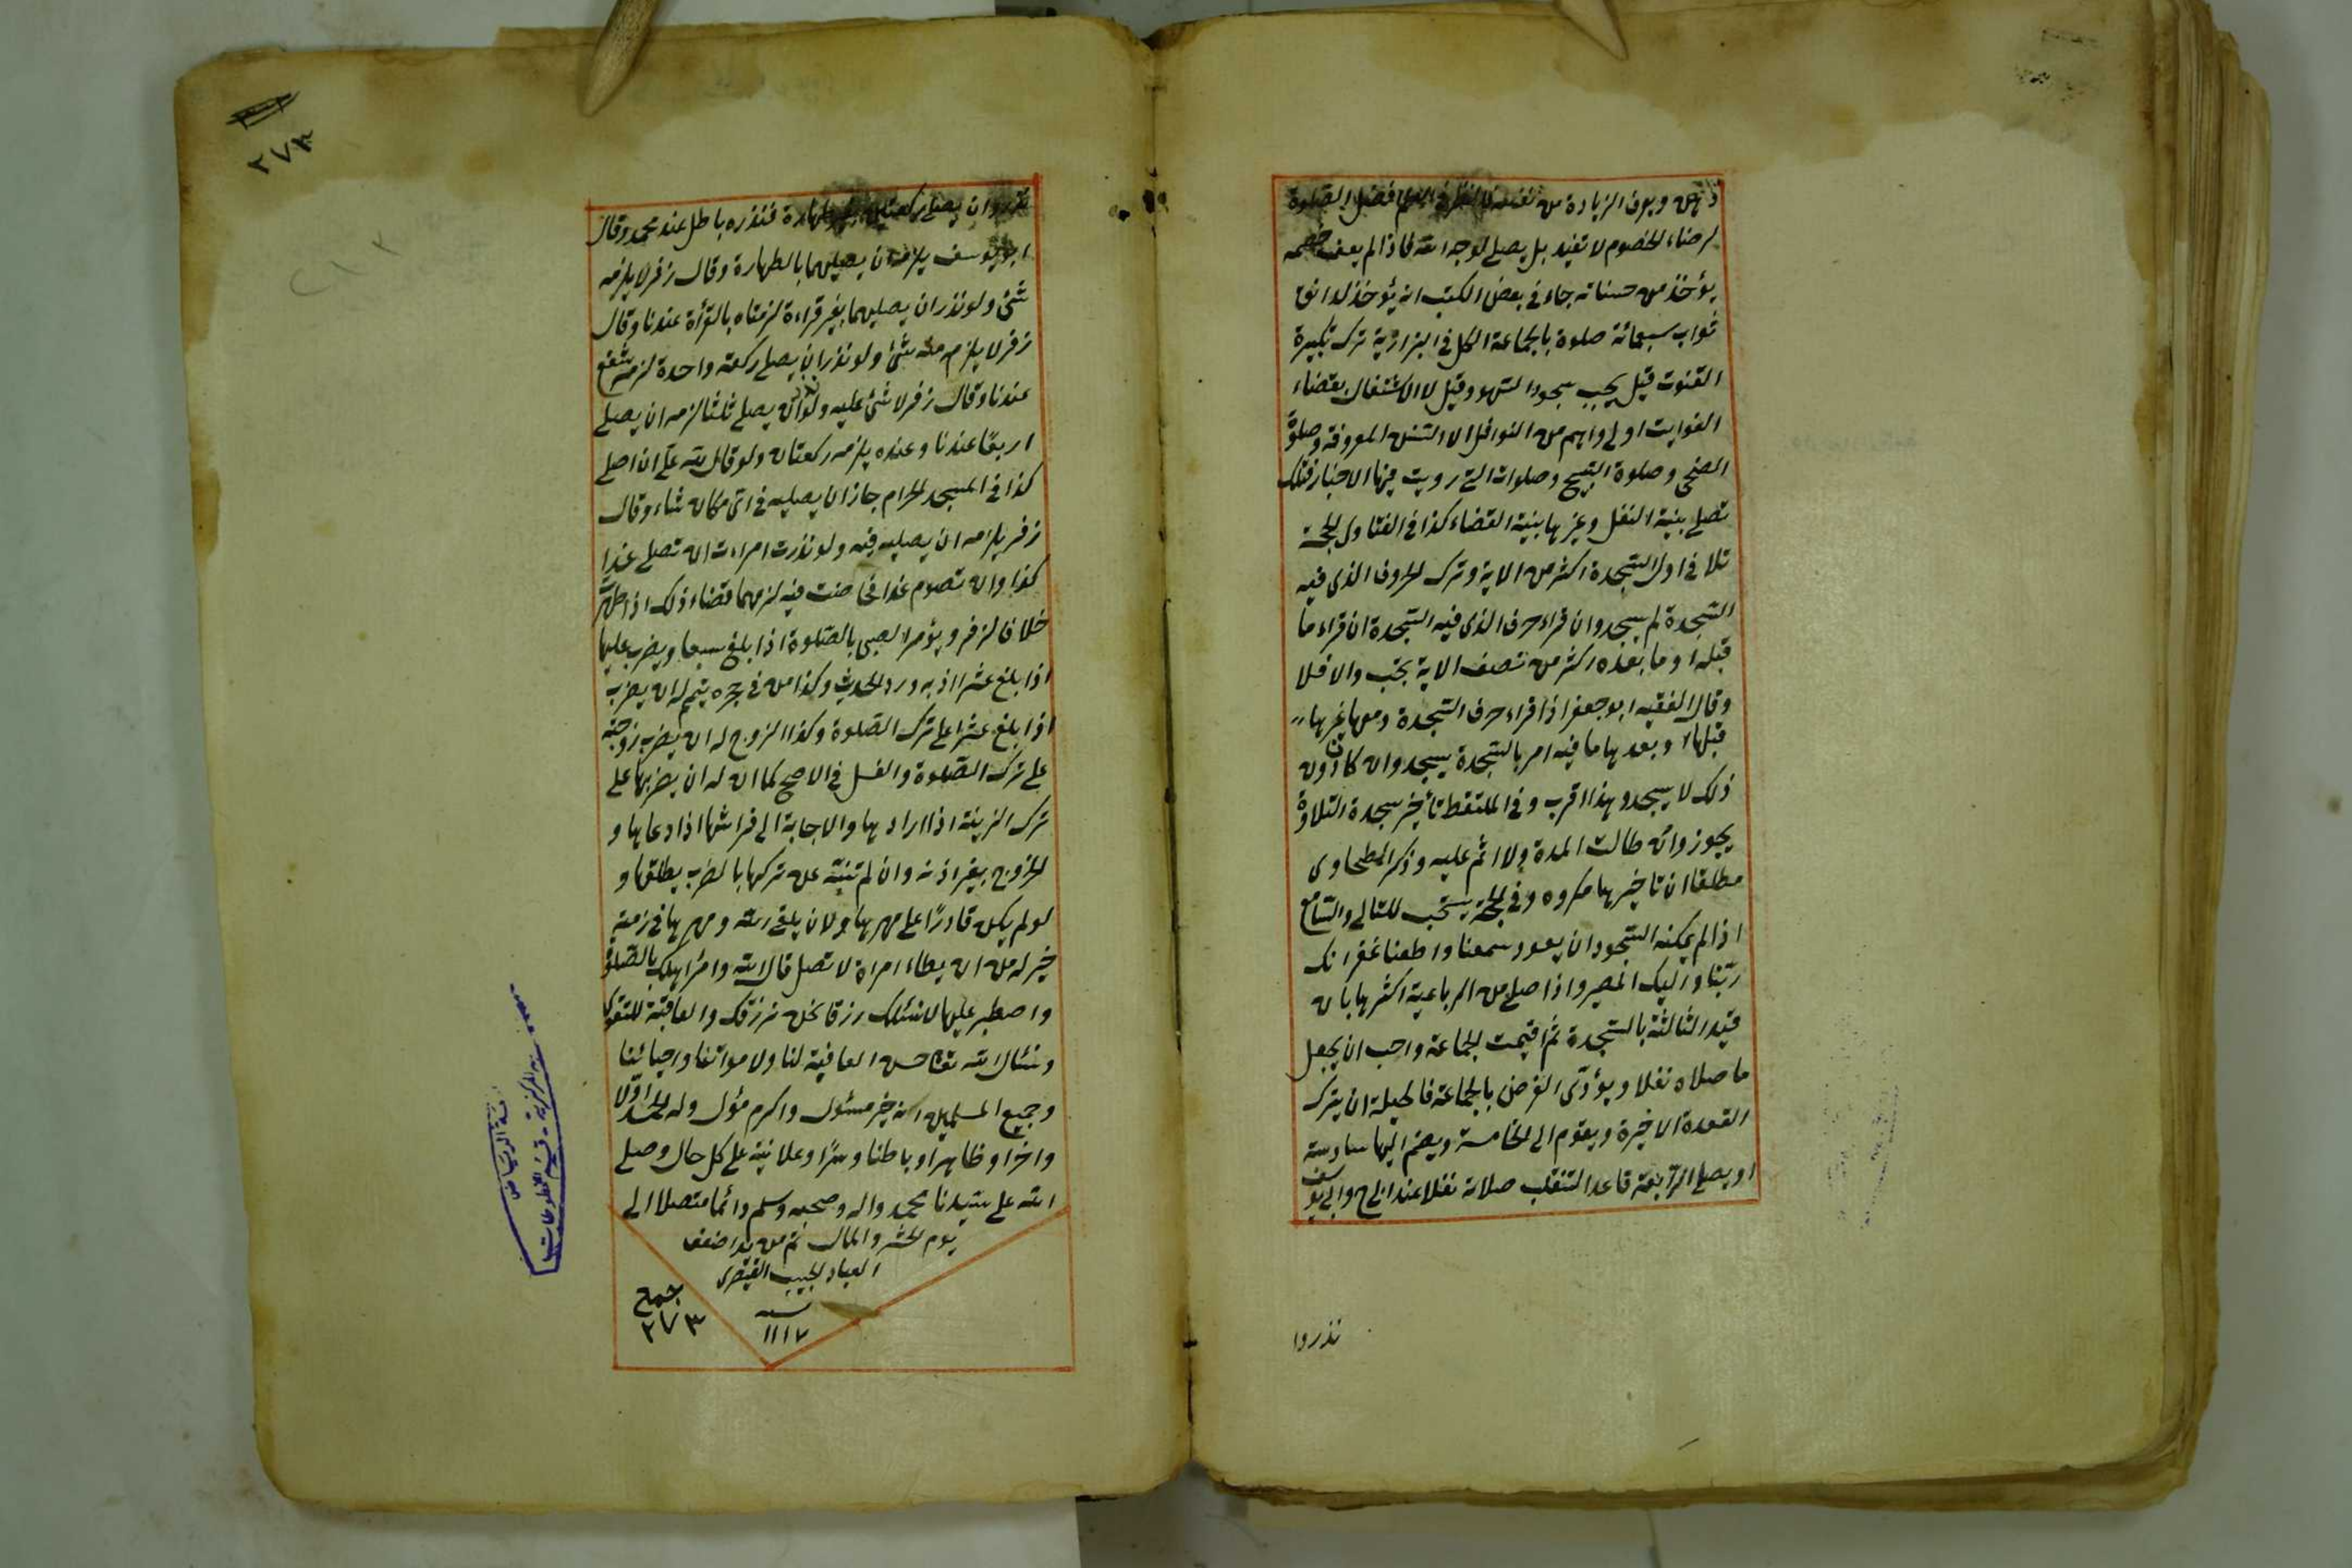 ذهن ويعرف الزيادة من نفسه فالنظر في العلم افضل الصلوة
لرضاء الخصوم لا تفيد بل يصلي لوجه الله فاذا لم يعف خصمه
يؤخذ من حسناته جاء في بعض الكتب انه يؤخذ لدانق
ثواب سبعمائة صلوة بالجماعة الكل في البزازية ترك تكبيرة
القنوت قيل يجب سجود السهو وقيل لا الاشتغال بقضاء
الفوايت اولى واهم من النوافل الا السنن المعروفة وصلوة
الضحى وصلوة التسبيح وصلوات التي رويت فيها الاخبار فتلك
تصلي بنية النفل وغيرها بنية القضاء كذا في الفتاوى الحجة
تلا في اول السجدة اكثر من الاية وترك الحرف الذي فيه
السجدة لم يسجد وان قراء حرف الذي فيه السجدة ان قراء ما
قبله او ما بعده اكثر من نصف الاية يجب والا فلا
وقال الفقيه ابو جعفر اذا قراء حرف السجدة ومعها غيرها
قبلها او بعدها ما فيه امر بالسجدة يسجد وان كان دون
ذلك لا يسجد وهذا اقرب وفي الملتقط تأخير سجدة التلاوة
يجوز وان طالت المدة ولا اثم عليه وذكر الطحاوى
مطلقا ان تاخيرها مكروه وفي الحجة يستحب للتالي والسامع
اذا لم يمكنه السجود ان يقول سمعنا واطعنا غفرانك
ربنا واليك المصير واذا صلى من الرباعية اكثرها بان
قيد الثالثة بالسجدة ثم اقيمت الجماعة واحب ان يجعل
ما صلاه نفلا ويؤدى الفرض بالجماعة فالحيلة ان يترك
القعدة الاخيرة ويقوم الى الخامسة ويضم اليها سادسة
او يصلي الرابعة قاعدا لتنقلب صلاته نفلا عند ابي ح وابي يوسف
نذروا
٢٧٣
نذروا ان يصلي ركعتين بغير طهارة فنذره باطل عند محمد وقال
ابو يوسف يلزمه ان يصليهما بالطهارة وقال زفر لا يلزمه
شئ ولو نذر ان يصليهما بغير قراءة لزمتاه بالقرأة عندنا وقال
زفر لا يلزمه شئ ولو نذر ان يصلي ركعة واحدة لزمه شفع
عندنا وقال زفر لا شئ عليه ولو نذر ان يصلي ثلثا لزمه ان يصلي
اربعا عندنا وعنده يلزمه ركعتان ولو قال لله علي ان اصلي
كذا في المسجد الحرام جاز ان يصليه في اي مكان شاء وقال
زفر يلزمه ان يصليه فيه ولو نذرت امراءت ان تصلي غدا
كذا وان تصوم غدا فحاضت فيه لزمهما قضاء ذلك اذا طهرت
خلافا لزفر ويؤمر الصبي بالصلوة اذا بلغ سبعا ويضرب عليها
اذا بلغ عشرا اذ به ورد الحديث وكذا من في حجره يتيم له ان يضرب
اذا بلغ عشرا على ترك الصلوة وكذا الزوج له ان يضرب زوجته
على ترك الصلوة والغسل في الاصح كما ان له ان يضربها على
ترك الزينة اذا ارادها والاجابة الى فراشها اذا دعاها و
الخروج بغير اذنه وان لم تنته عن تركها بالضرب يطلقها و
لو لم يكن قادرًا على مهرها ولان يلقى الله ومهرها في ذمته
خير له من ان يطاء امراة لا تصل قال الله وامر اهلك بالصلوة
واصطبر عليها لا نسئلك رزقا نحن نرزقك والعاقبة للتقوى
ونسئال الله تعا حسن العافية لنا ولامواتنا واحيائنا
وجميع المسلمين انه خير مسئول واكرم مؤل وله الحمد اولا
واخرا وظاهرا وباطنا وسرا وعلانية على كل حال وصلى
الله على سيدنا محمد واله وصحبه وسلم دائما متصلا الى
يوم الحشر والمال تم من يد اضعف
العباد لحبيب القيصرى
سنه
١١١٧
جمع
٢٧٣